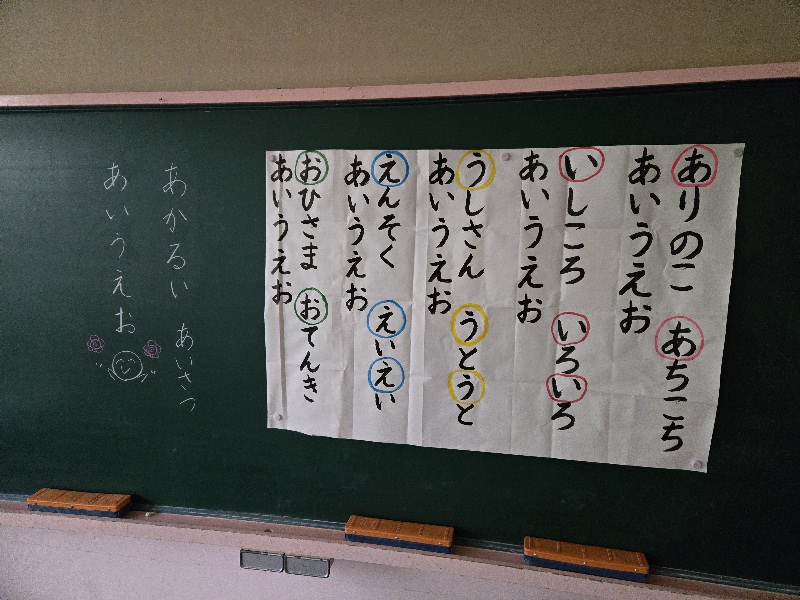 ありのこ あちこち
あいうえお
いしころ いろいろ
あいうえお
うしさん うとうと
あいうえお
えんそく えいえい
あいうえお
おひさま おてんき
あいうえお
あかるい あいさつ
あいうえお